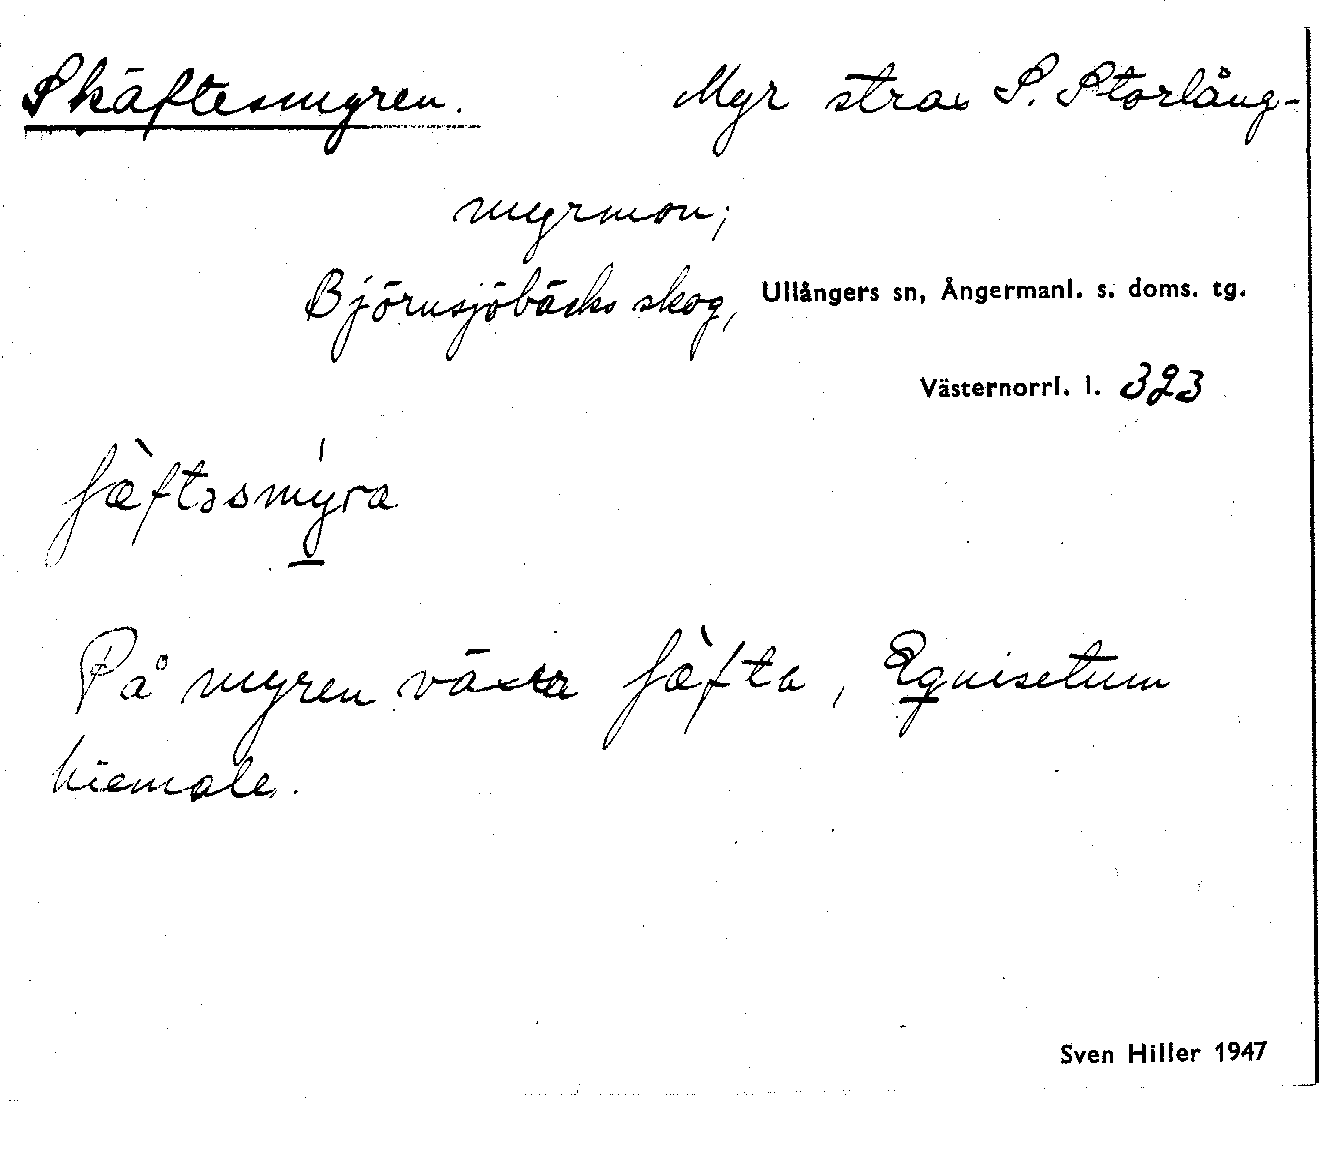 Skäftesmyren. Myr strax S. Storlång-
myrmon;
Björnsjöbäcks skog, Ullångers sn, Ångermanl. s. doms. tg.
Västernorrl. l. 323
ʃæ̀ftəsmýra
På myren växer ʃæ̀fta, Equisetum
hiemale.
Sven Hiller 1947